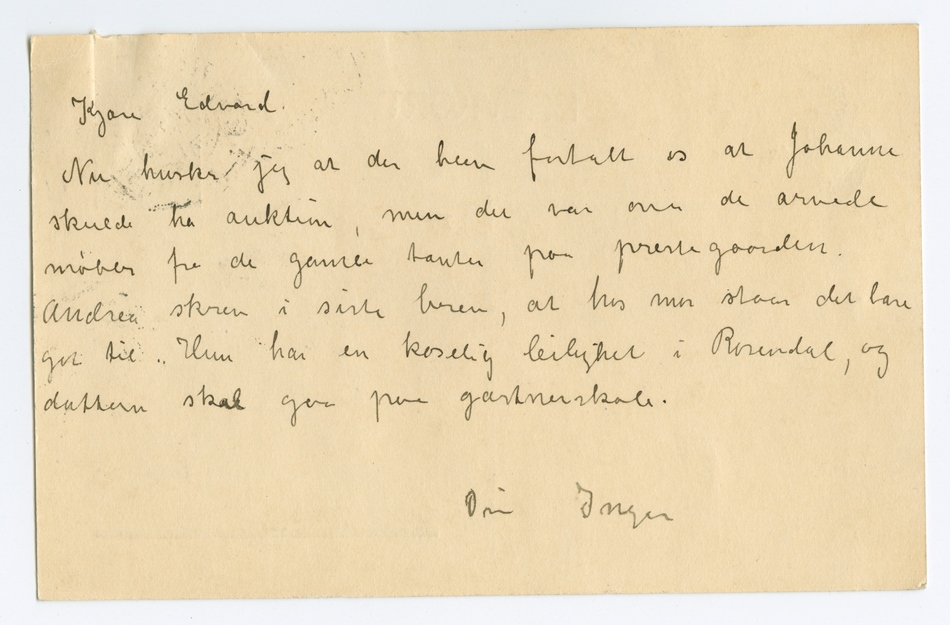 Kjære Edvard.
Nu husker jeg at der blev fortalt os at Johanne
skulde ha auktion, men det var over de arvede
møbler fra de gamle tanter paa prestegaarden.
Andrea skrev i siste brev, at hos mor staar det bare
got til. Hun har en koselig leilighet i Rosendal, og
dattern skal gaa paa gartnerskole.
Din Inger